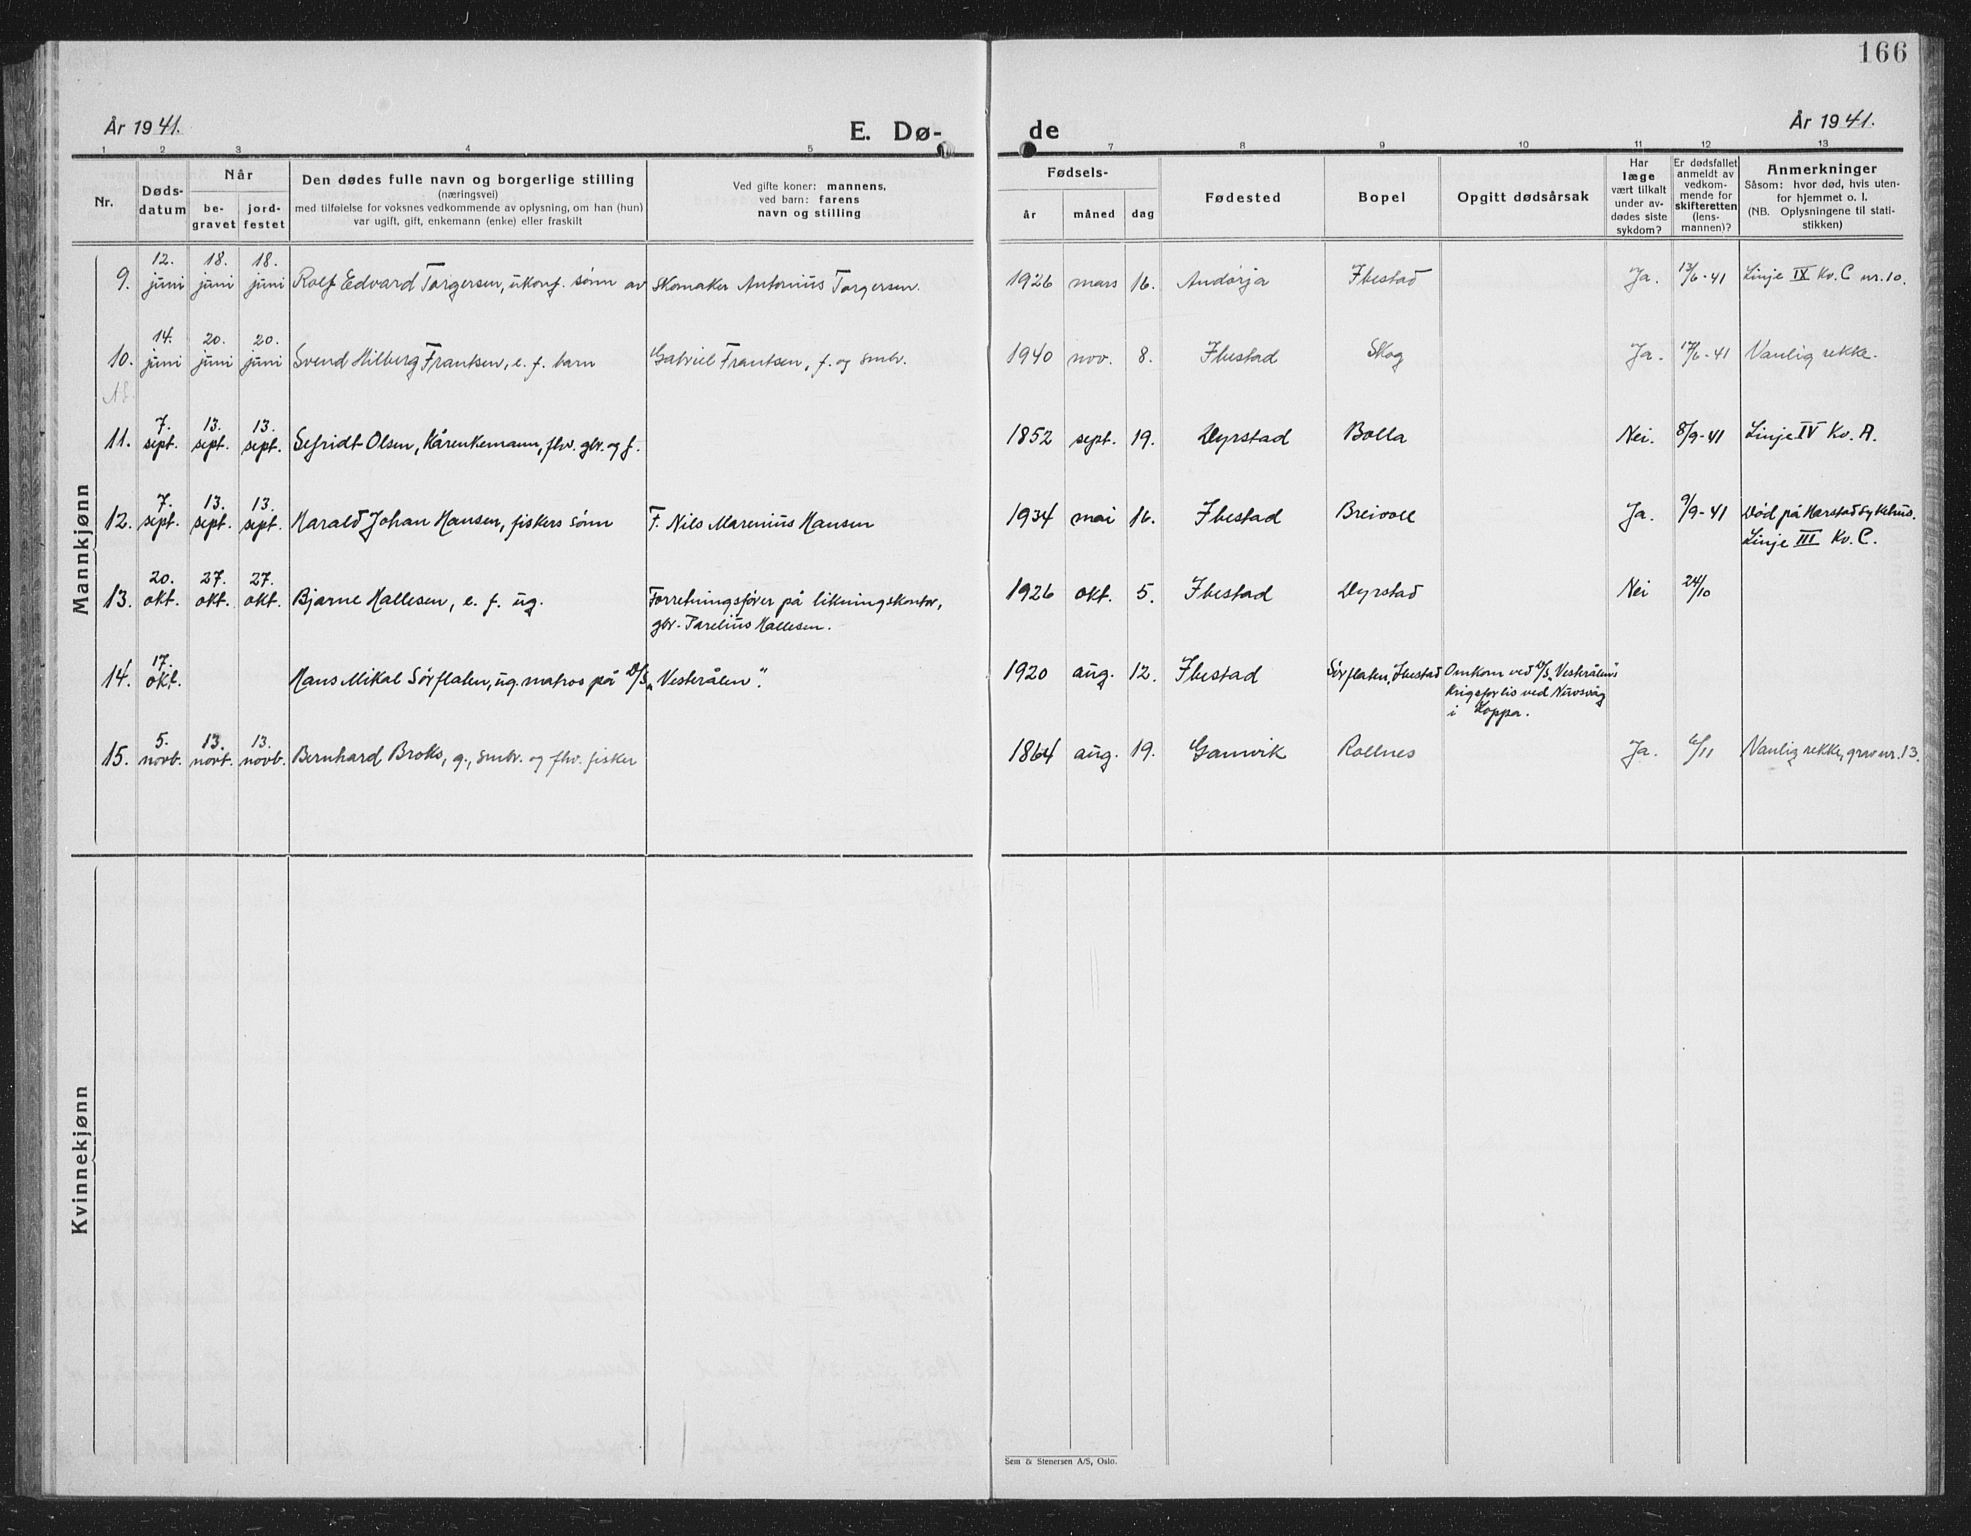 166
År 1941.
E. Dø-
de
År 1941.
1 2 3 4 5 7 8 9 10 11 12 13
Nr.
Døds-
datum
Når
be-
gravet
jord-
festet
Den dødes fulle navn og borgerlige stilling
(næringsvei)
med tilføielse for voksnes vedkommende av oplysning, om han (hun)
var ugift, gift, enkemann (enke) eller fraskilt
Ved gifte koner: mannens,
ved barn: farens
navn og stilling
Fødsels-
år måned dag
Fødested
Bopel
Opgitt dødsårsak
Har
læge
vært tilkalt
under av-
dødes siste
sykdom?
Er dødsfallet
anmeldt av
vedkom-
mende for
skifteretten
(lens-
mannen)?
Anmerkninger
Såsom: hvor død, hvis uten-
for hjemmet o. l.
(NB. Oplysningene til stati-
stikken)
Mannkjønn
9. 12. juni 18. juni 18. juni Rolf Edvard Torgersen, ukonf. sønn av Skomaker Antonius Torgersen. 1926 mars 16. Andørja Ibestad Ja. 13/6-41 Linje IX Kv. C nr. 10.
10. 14. juni 20. juni 20. juni Svend Hilberg Frantsen, e. f. barn Gabriel Frantsen, f. og smbr. 1940 nov. 8. Ibestad Skog Ja. 17/6-41 Vanlig rekke.
11. 7. sept. 13. sept. 13. sept. Sefridt Olsen, kårenkemann, fhv. gbr. og f. 1852 sept. 19. Dyrstad Bolla Nei. 8/9-41 Linje IV Kv. A.
12. 7. sept. 13. sept. 13. sept. Harald Johan Hansen, fiskers sønn F. Nils Marenius Hansen 1934 mai 16. Ibestad Breivoll Ja. 9/9-41 Død på Harstad sykehus.
Linje III Kv. C.
13. 20. okt. 27. okt. 27. okt. Bjarne Hallesen, e. f. ug. Forretningsfører på likningskontor, 1926 okt. 5. Ibestad Dyrstad Nei 24/10
gbr. Parelius Hallesen.
14. 17. okt. Hans Mikal Sørflaten, ug. matros på D/S „Vesterålen“. 1920 aug. 12. Ibestad Sørflaten, Ibestad Omkom ved D/S „Vesterålens“
krigsforlis ved Nuvsvåg
i Loppa.
15. 5. novb. 13. novb. 13. novb. Bernhard Broks, g., smbr. og fhv. fisker 1864 aug. 19. Gamvik Rollnes Ja. 6/11 Vanlig rekke, grav nr. 13.
Kvinnekjønn
Sem & Stenersen A/S, Oslo.